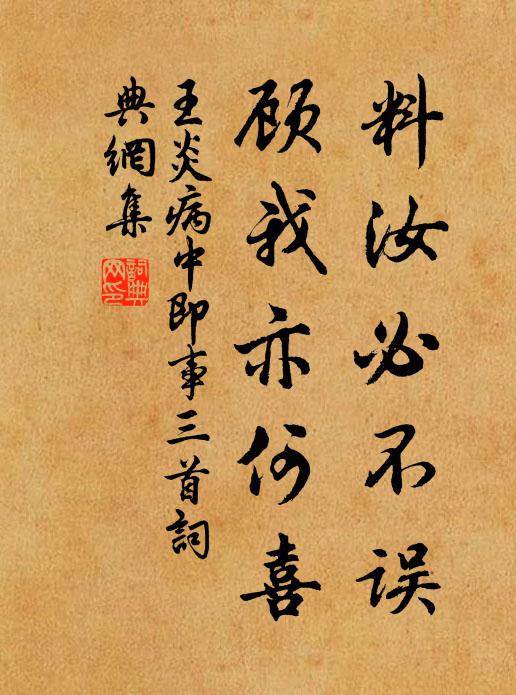 料汝必不误
顾我亦何喜
王炎病中即事三首詞
典網集
詞典网印